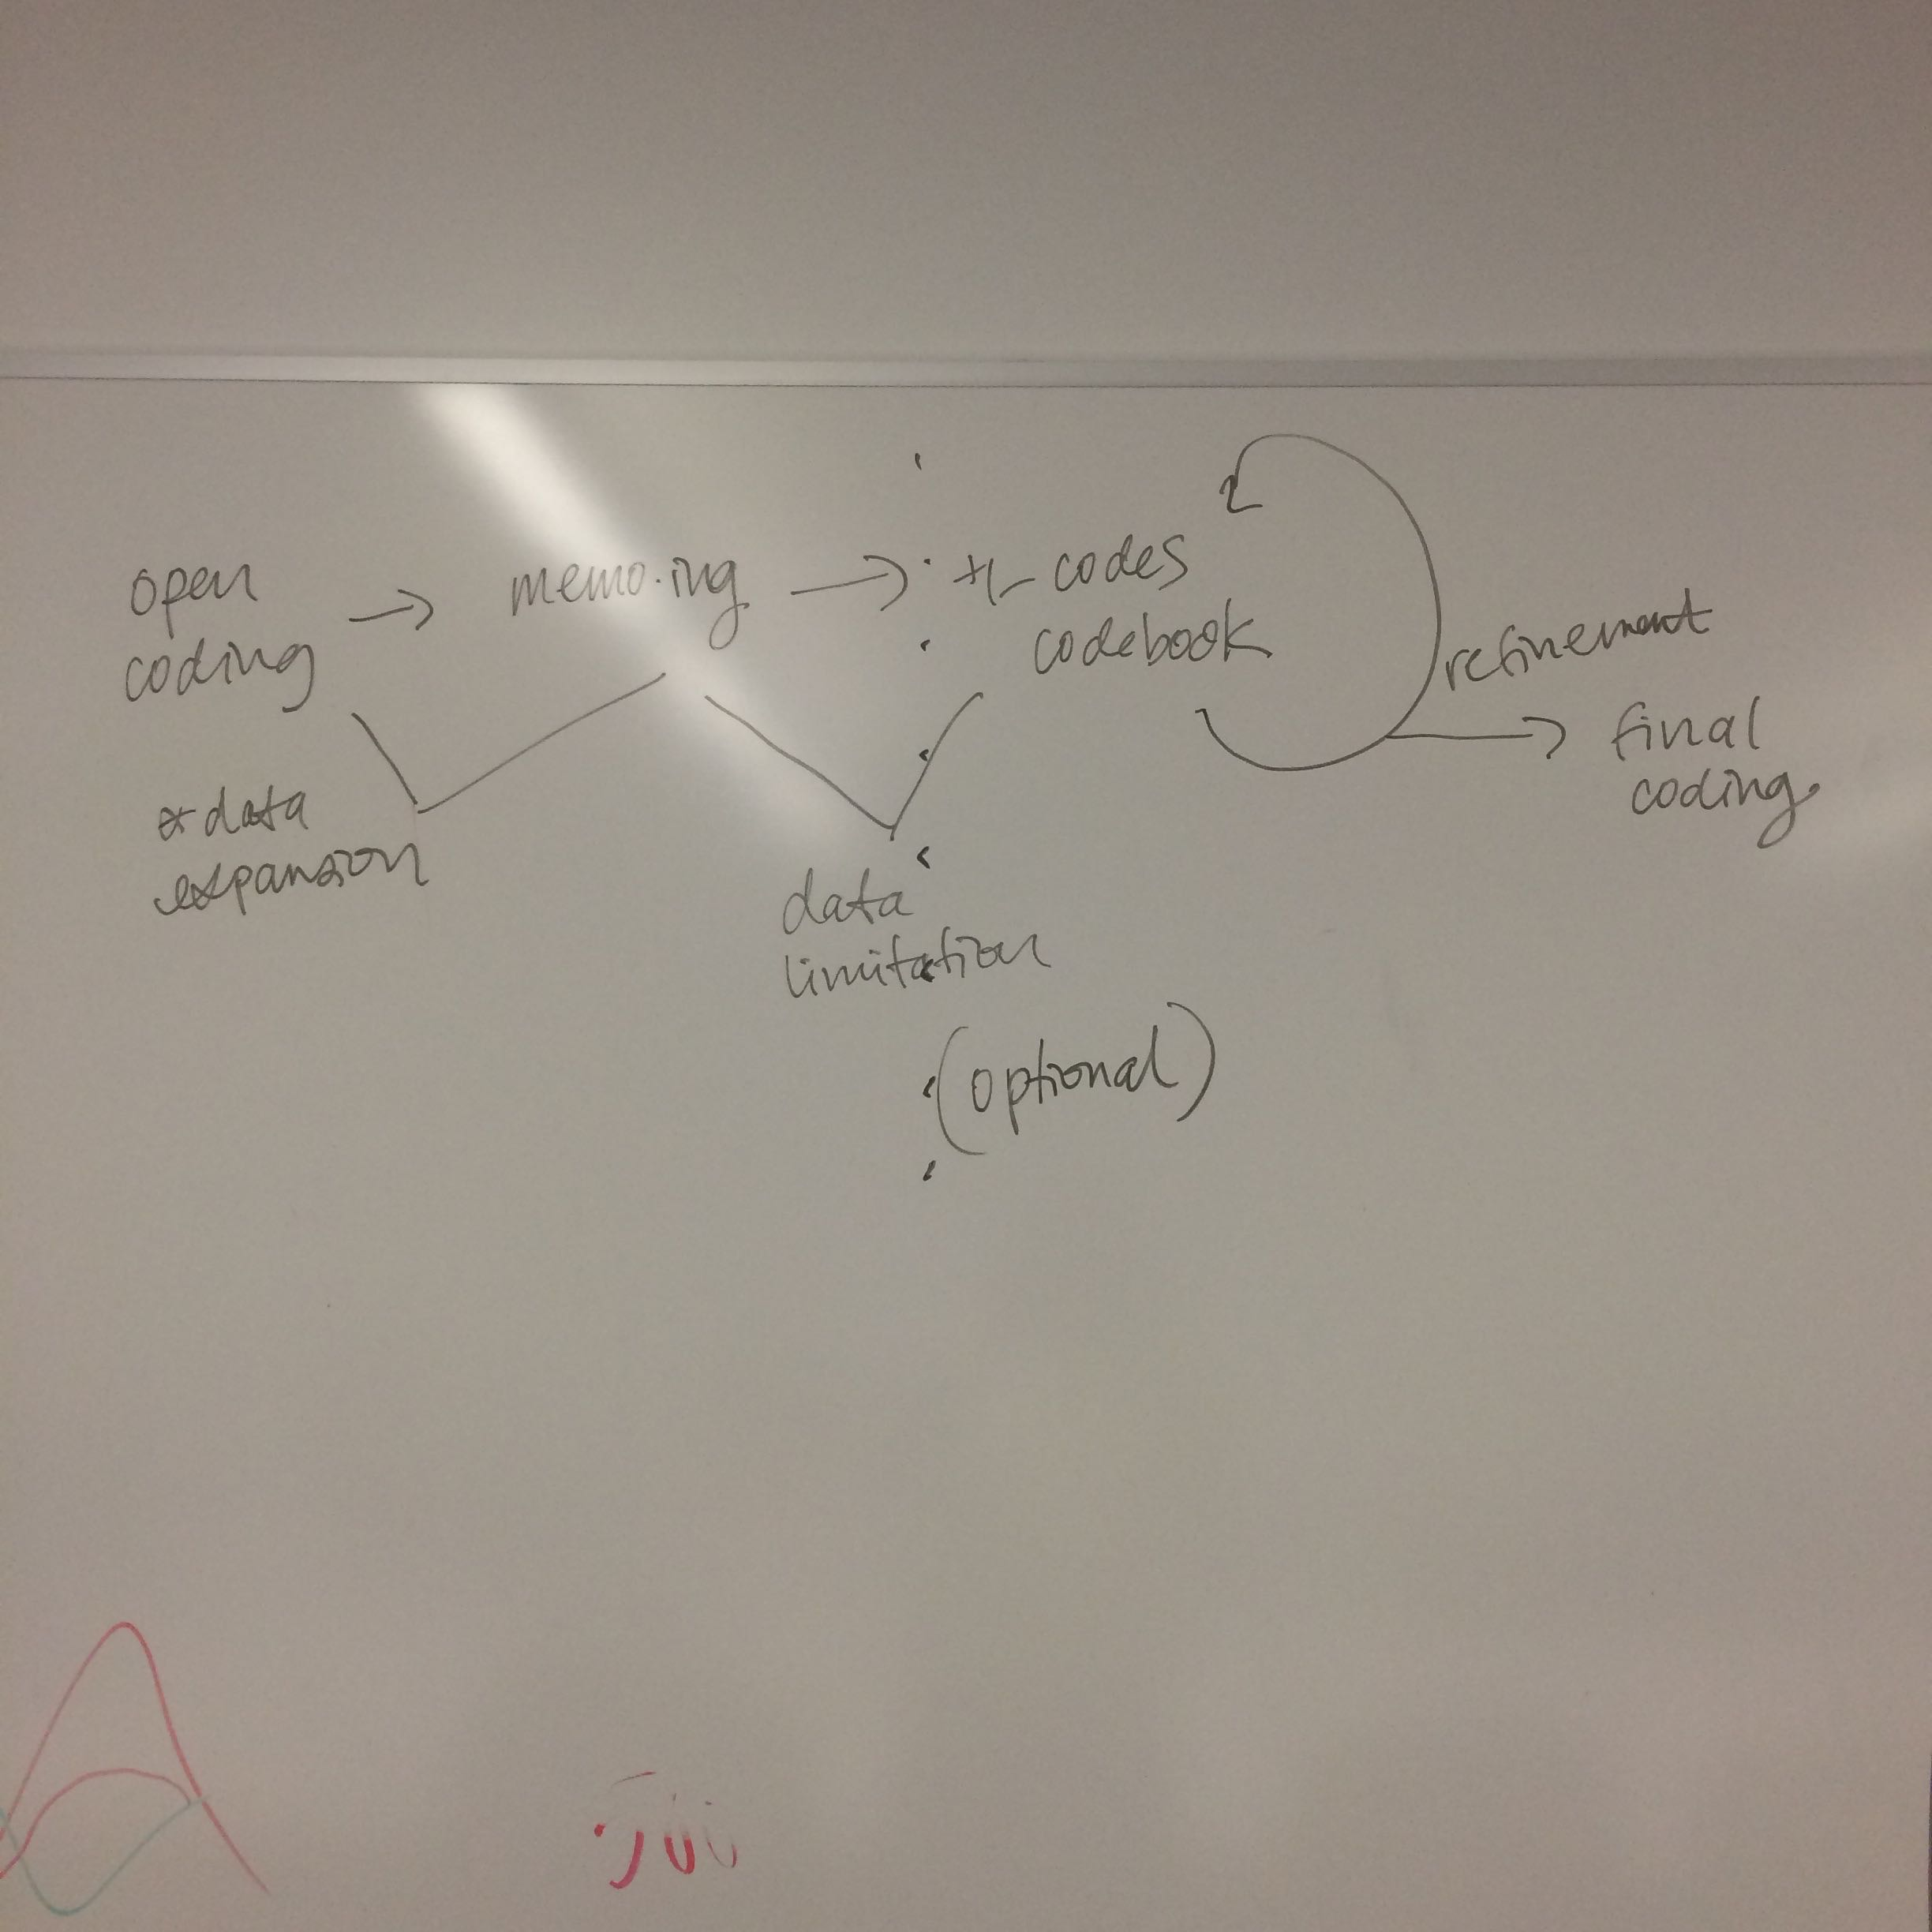 open
coding
→
memo.ing
→
+/- codes
codebook
refinement
→
final
coding
* data
expansion
data
limitation
(optional)